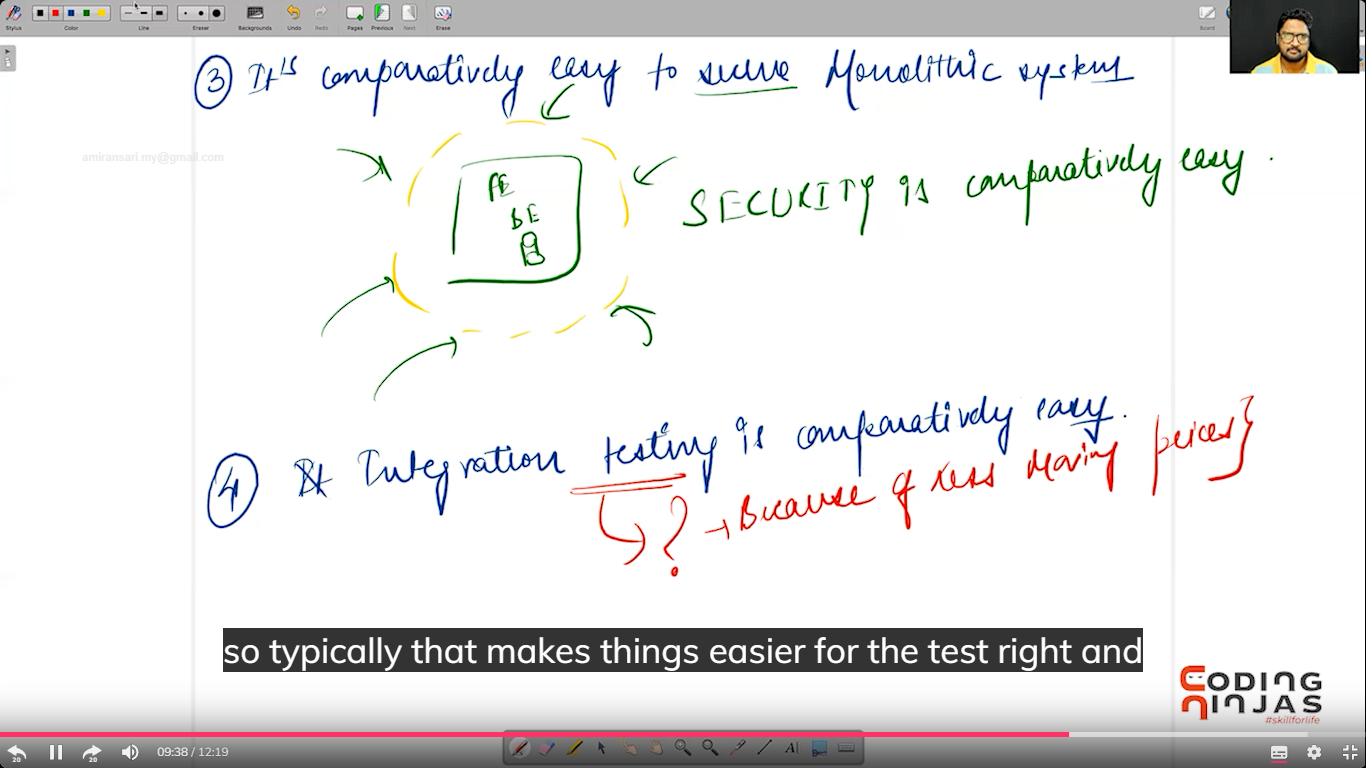 Stylus
Color
Line
Eraser
Backgrounds
Undo
Redo
Pages
Previous
Next
Erase
Board
③ It's comparatively easy to secure Monolithic system
amiransari.my@gmail.com
FE
BE
SECURITY is comparatively easy.
④ Integration testing is comparatively easy.
? → Because of less Moving peices}
so typically that makes things easier for the test right and
CODING
NINJAS
#skillforlife
20
20
09:38 / 12:19